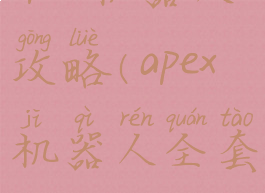 gōng lüè
攻略(apex
jī qì rén quán tào
机器人全套